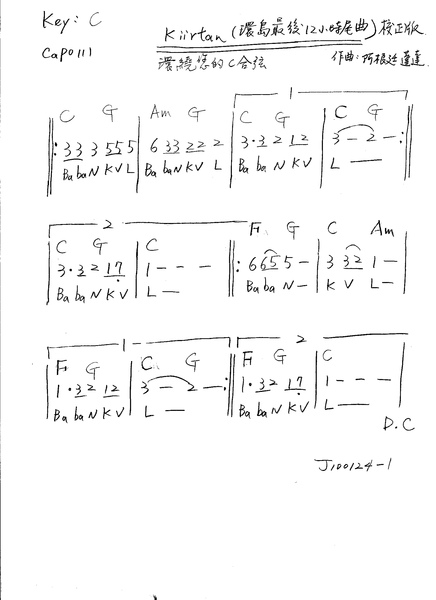 Key: C
Kiirtan (環島最後12小時尾曲) 校正版
Capo III
環繞您的C合弦 作曲: 阿根廷達達
1
C G Am G C G C G
‖: 33 3 555 | 6 33 22 2 | 3·32 12 | 3 — 2 — :‖
Ba baN KV L Ba baN KV L Ba baN KV L —
2
C G C F G C Am
3·32 17 | 1 - - - ‖: 665 5 — | 3 32 1 — |
Ba baN KV L — Ba baN — K V L —
1 2
F G C G F G C
1·32 12 | 3 — 2 — :‖ 1·32 17 | 1 - - - |
Ba baN KV L — Ba baN KV L —
D.C
J100124-1